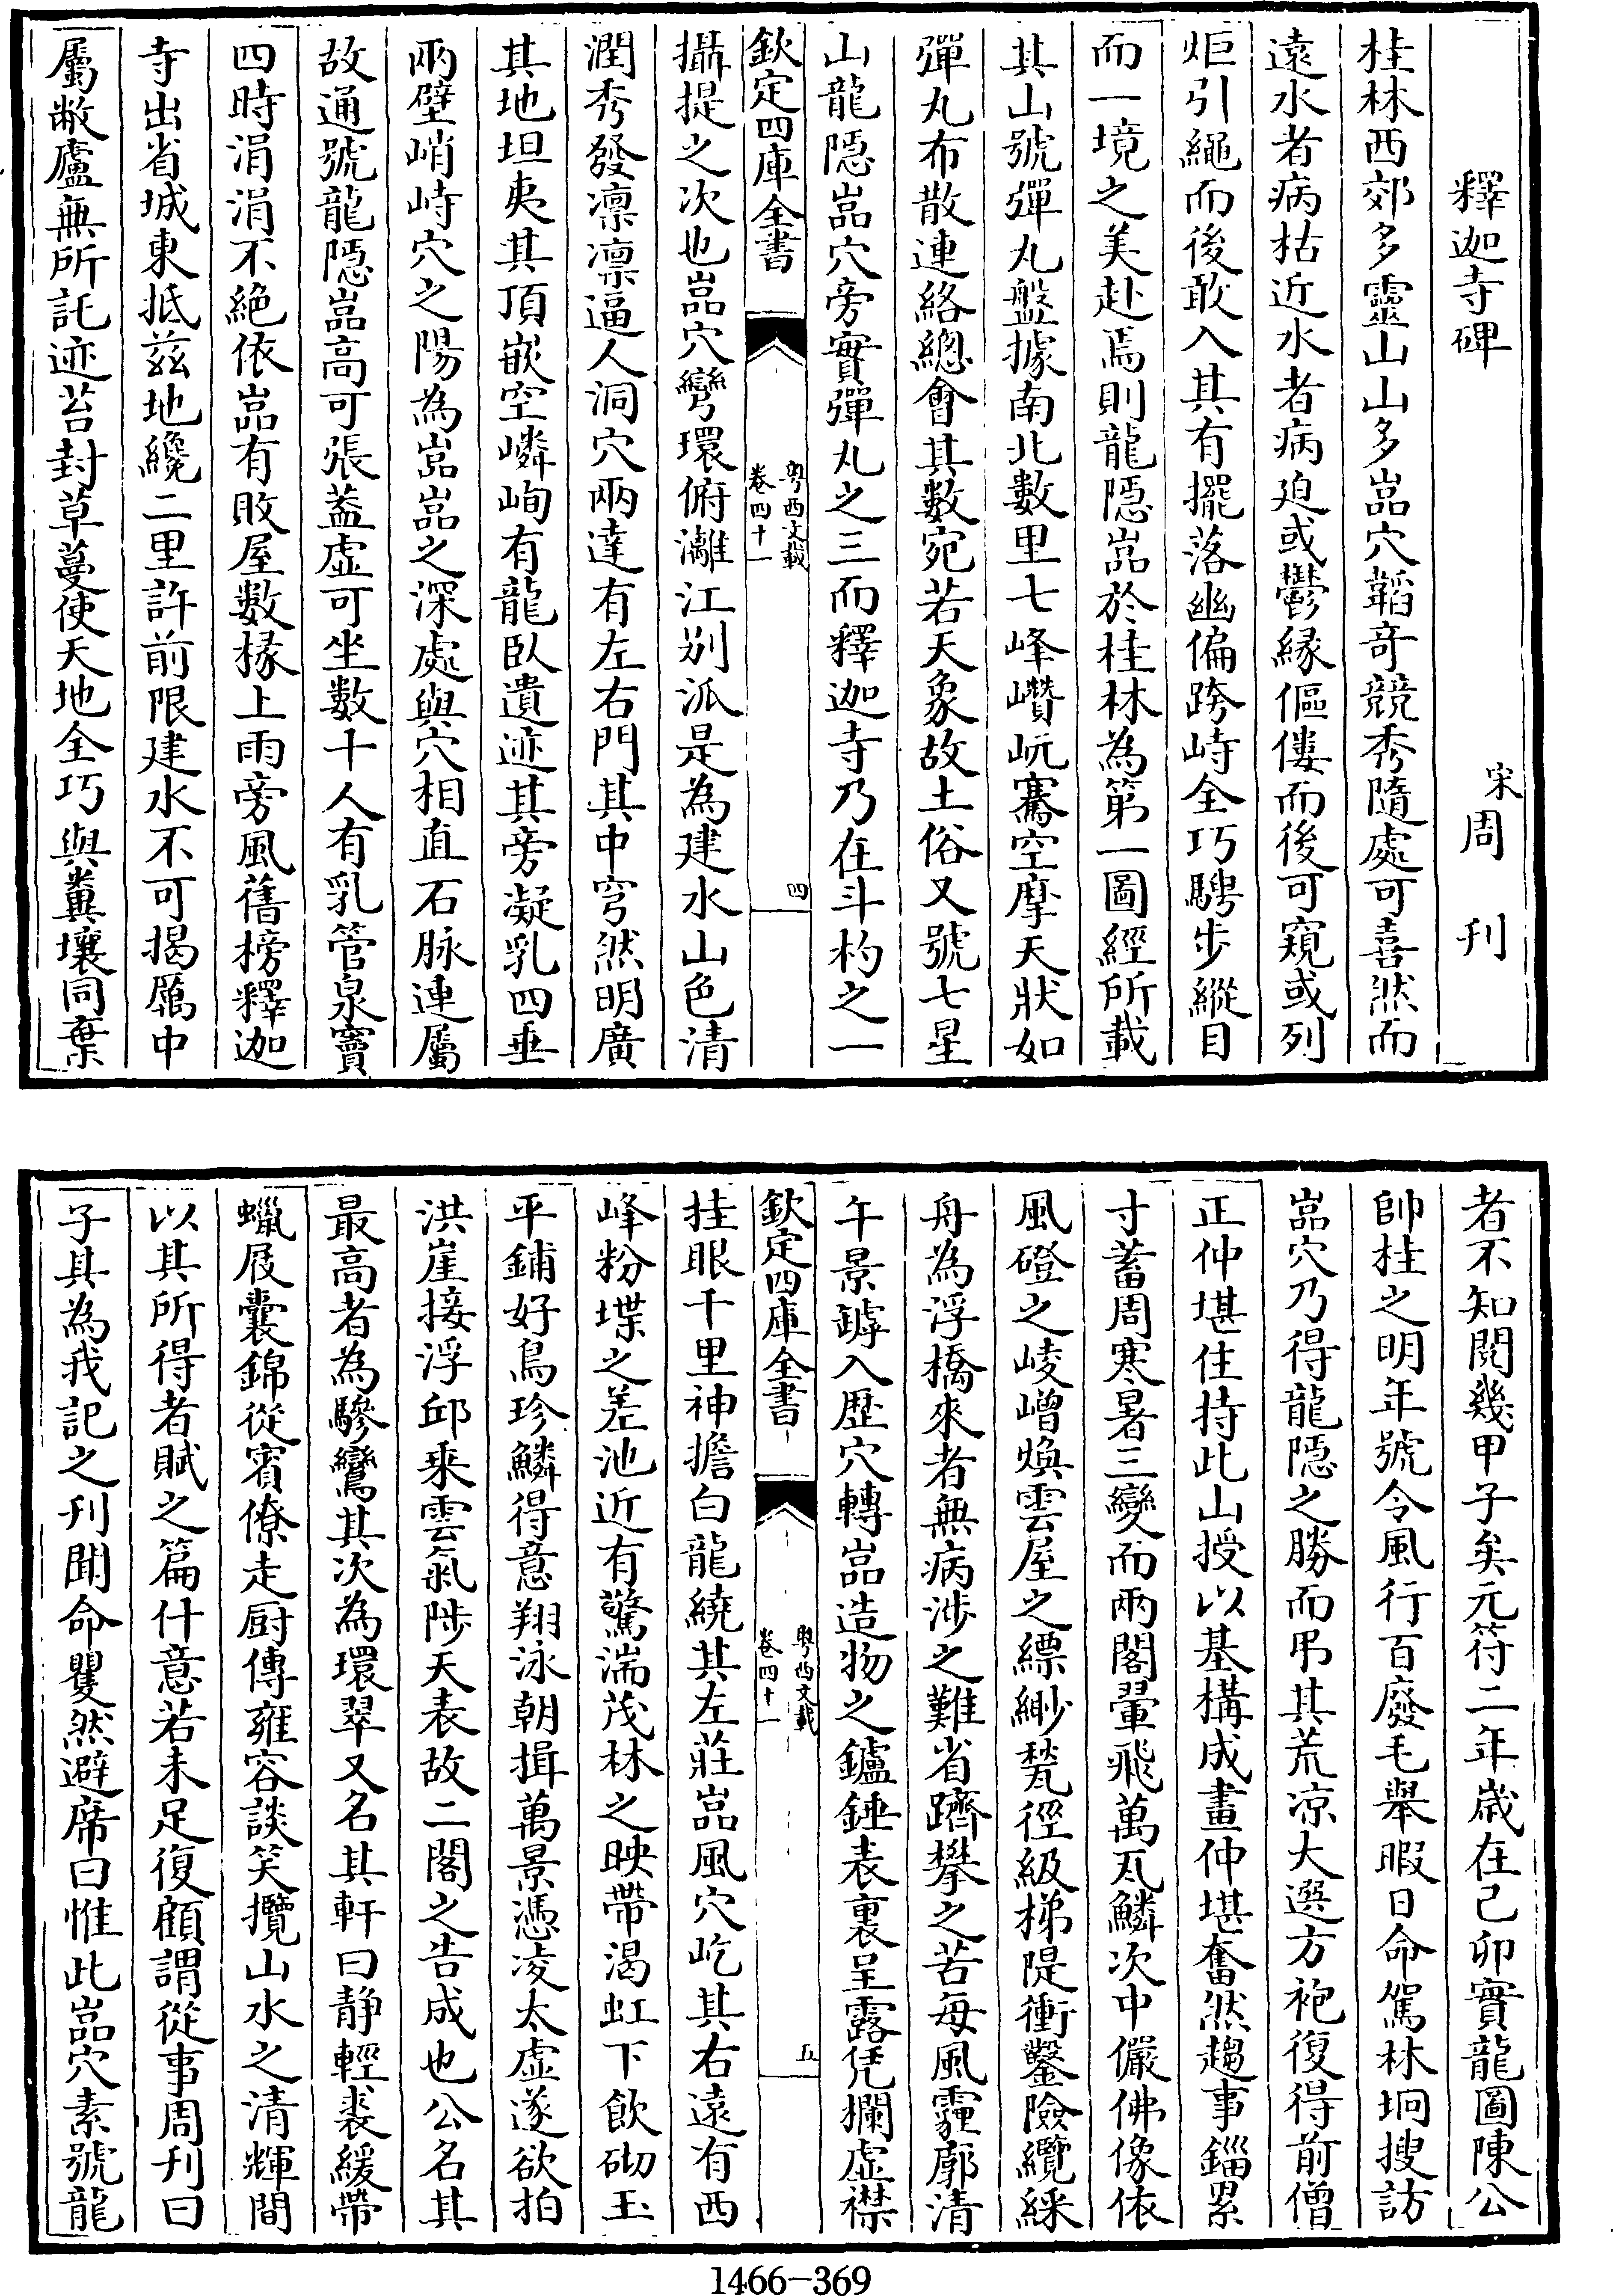 釋迦寺碑　宋周刋
桂林西郊多靈山山多嵓穴韜竒競秀隨處可喜然而
遠水者病枯近水者病廹或鬱緣傴僂而後可窺或列
炬引繩而後敢入其有擺落幽偏跨峙全巧騁步縱目
而一境之美赴焉則龍隠嵓於桂林為第一圖經所載
其山號彈丸盤據南北數里七峰巑岏騫空摩天狀如
彈丸布散連絡總㑹其數宛若天象故土俗又號七星
山龍隠嵓穴旁實彈丸之三而釋迦寺乃在斗杓之一
欽定四庫全書
粤西文載
卷四十一
四
攝提之次也嵓穴彎環俯灕江别派是為建水山色清
潤秀發凛凛逼人洞穴兩達有左右門其中穹然明廣
其地坦夷其頂嵌空嶙峋有龍臥遺迹其旁凝乳四垂
兩壁峭峙穴之陽為嵓嵓之深處與穴相直石脉連屬
故通號龍隠嵓高可張葢虚可坐數十人有乳管泉竇
四時涓涓不絶依嵓有敗屋數椽上雨旁風舊榜釋迦
寺出省城東抵兹地纔二里許前限建水不可揭厲中
屬敝廬無所託迹苔封草蔓使天地全巧與糞壤同棄
者不知閲幾甲子矣元符二年嵗在己卯實龍圖陳公
帥桂之明年號令風行百廢毛舉暇日命駕林坰搜訪
嵓穴乃得龍隠之勝而弔其荒凉大選方袍復得前僧
正仲堪住持此山授以基構成畫仲堪奮然趨事錙累
寸蓄周寒暑三變而兩閣翬飛萬瓦鱗次中儼佛像依
風磴之崚嶒煥雲屋之縹緲甃徑級梯隄衝鑿險纜綵
舟為浮橋來者無病涉之難省躋攀之苦每風霾廓清
午景罅入歴穴轉嵓造物之鑪錘表裏呈露凭欄虚襟
欽定四庫全書
粤西文載
卷四十一
五
挂眼千里神擔白龍繞其左莊嵓風穴屹其右遠有西
峰粉堞之差池近有驚湍茂林之映帶渴虹下飲砌玉
平鋪好鳥珍鱗得意翔泳朝揖萬景憑凌太虚遂欲拍
洪崖接浮邱乗雲氣陟天表故二閣之告成也公名其
最高者為驂鸞其次為環翠又名其軒曰静輕裘緩帶
蠟屐囊錦從賓僚走厨傳雍容談笑攬山水之清輝間
以其所得者賦之篇什意若未足復顧謂從事周刋曰
子其為我記之刋聞命矍然避席曰惟此嵓穴素號龍
1466—369